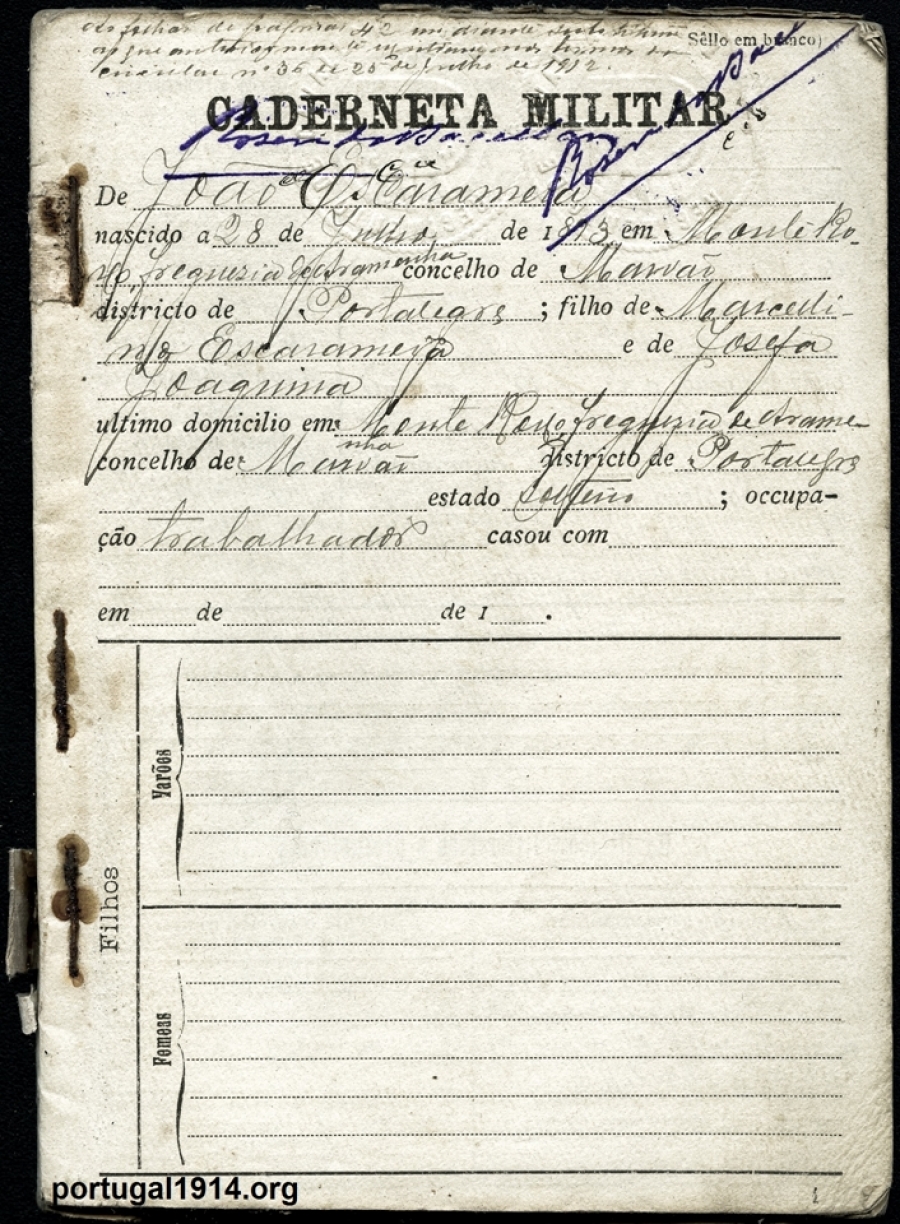 As folhas de paginas 42 em diante
circular nº 36 de 25 de Julho de 1912.
Sêllo em branco)
CADERNETA MILITAR
De João Escarameia
nascido a 28 de Julho de 1893 em Monte Ro-
xo, freguezia de Aramenha concelho de Marvão
districto de Portalegre ; filho de Marcelli-
no Escarameia e de Josefa
Joaquina
ultimo domicilio em: Monte Roxo freguezia de Arame-
nha
concelho de: Marvão districto de Portalegre
estado solteiro ; occupa-
ção trabalhador casou com
em de de 1 .
Filhos
Varões
Femeas
portugal1914.org